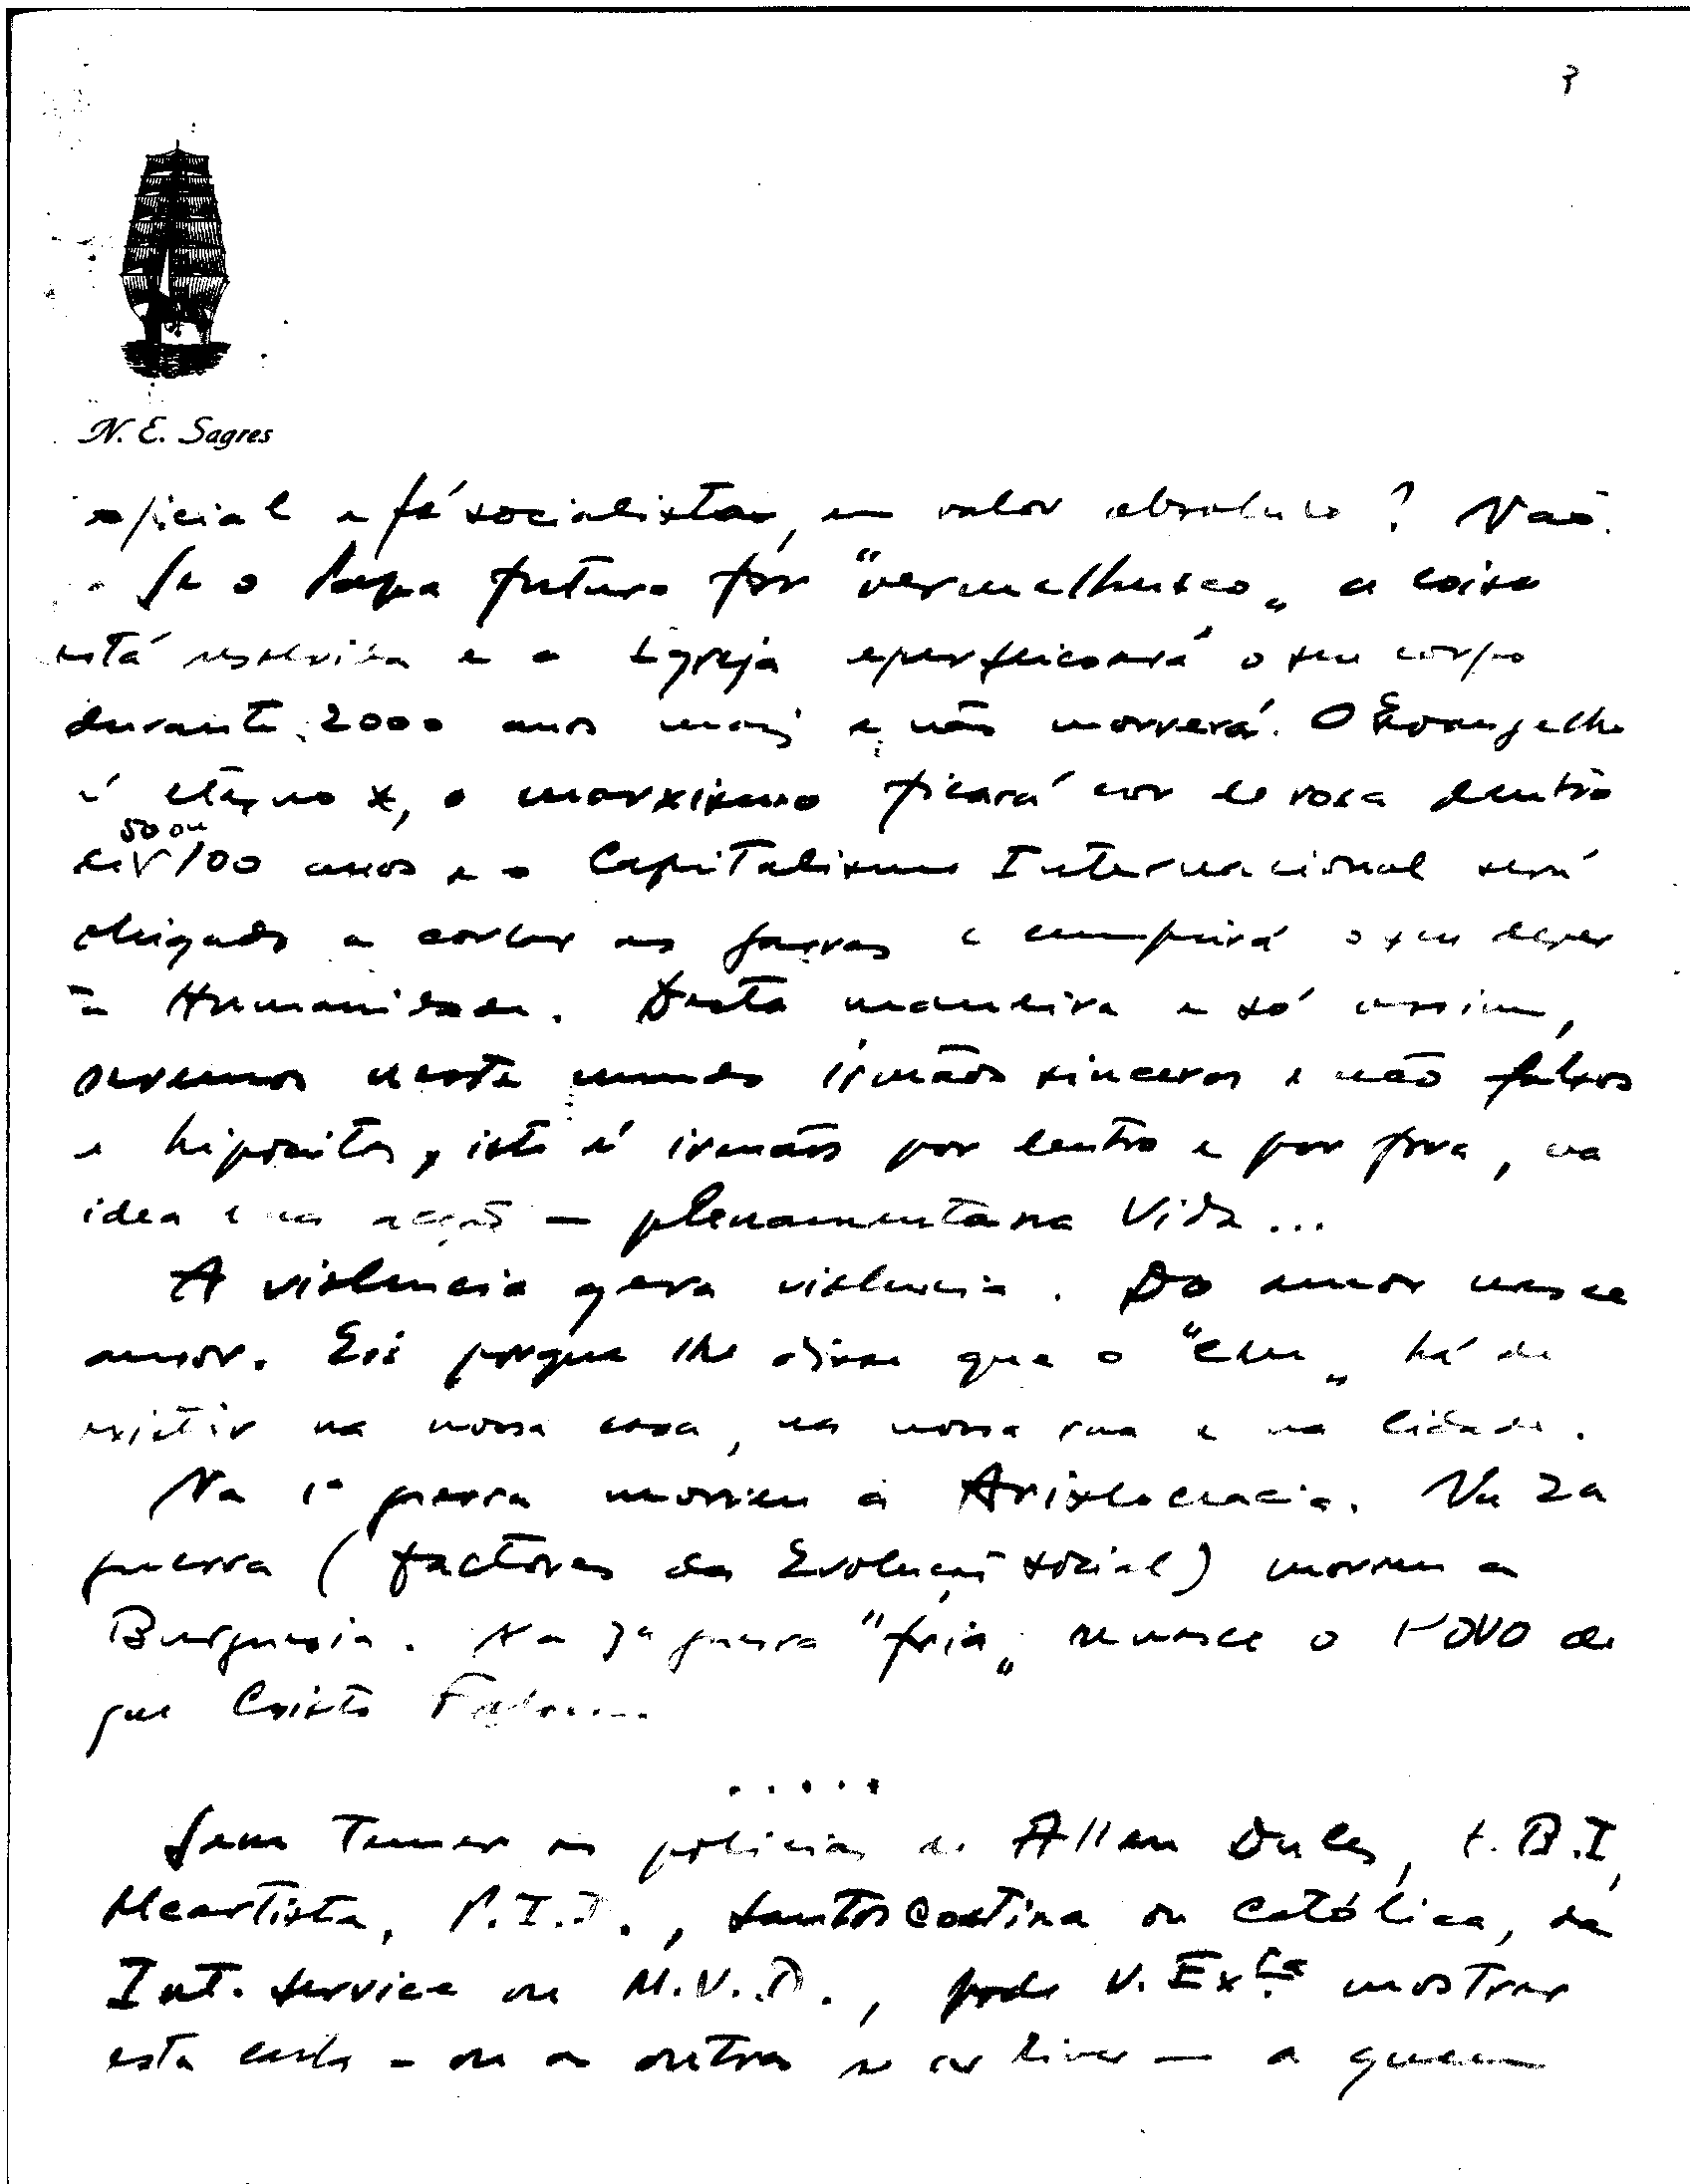 3
N. E. Sagres
oficial e fé socialista, em valor absoluto? Não.
Se o Papa futuro fôr "vermelhusco" a coisa
está resolvida e a Igreja aperfeiçoará o seu corpo
durante 2000 anos mais e não morrerá. O Evangelho
é eterno, o marxismo ficará cor de rosa dentro
50 ou
de 100 anos e o Capitalismo Internacional será
obrigado a cortar as garras e cumprirá o seu dever
Humanidade. Desta maneira e só assim,
seremos neste mundo irmãos sinceros e não falsos
e hipócritas, isto é irmãos por dentro e por fora, na
idea e na acção — plenamente na Vida...
A violencia gera violencia. Do amor nasce
amor. Eis porque lhe disse que o "céu" há de
existir na nossa casa, na nossa rua e na cidade.
Na 1ª guerra morreu a Aristocracia. Na 2a
guerra (factores da Evolução social) morreu a
Burguesia. Na 3ª guerra "fria" renasce o POVO de
que Cristo Falou...
.....
Sem temer as policias de Allen Dules, F.B.I,
Mcartista, P.I.D., Santos Costina ou Católica, da
Int. Service ou M.V.D., pode V. Ex.cia mostrar
esta carta — ou a outra se a tiver — a quem